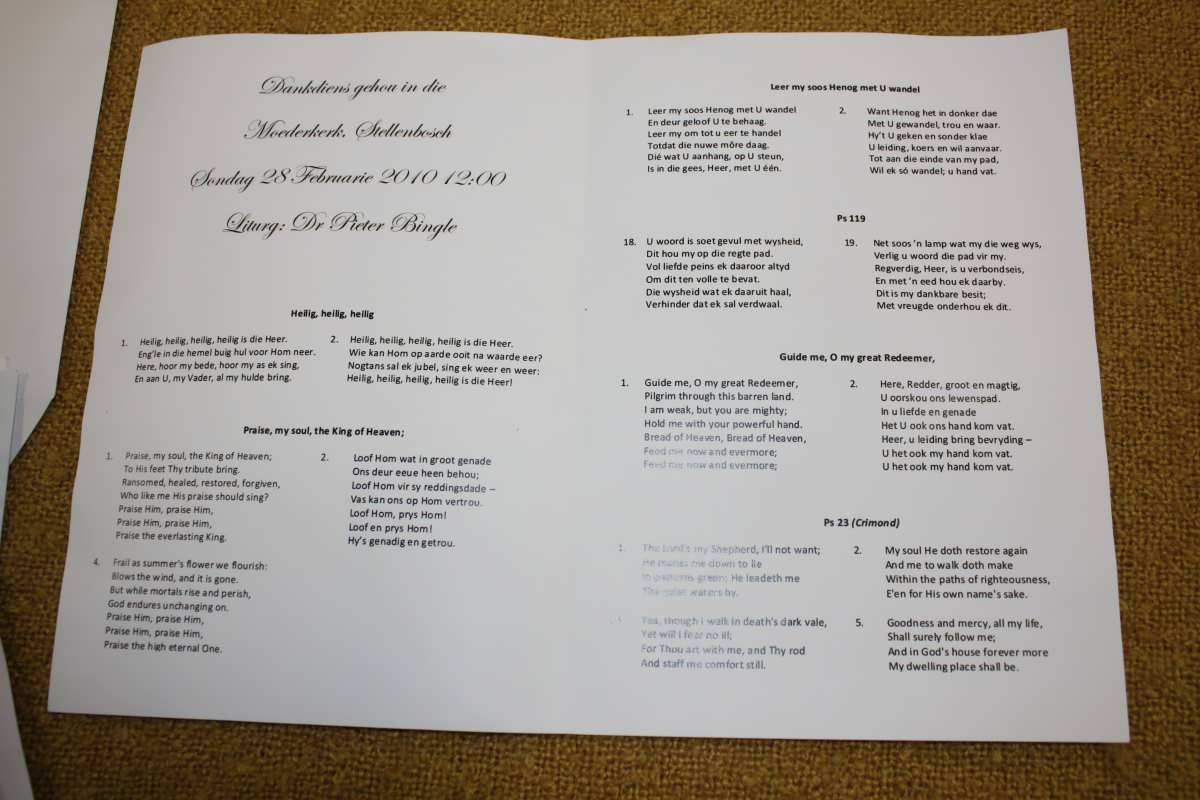 Dankdiens gehou in die
Moederkerk, Stellenbosch
Sondag 28 Februarie 2010 12:00
Liturg: Dr Pieter Bingle
Heilig, heilig, heilig
1. Heilig, heilig, heilig, heilig is die Heer.
Eng'le in die hemel buig hul voor Hom neer.
Here, hoor my bede, hoor my as ek sing,
En aan U, my Vader, al my hulde bring.
2. Heilig, heilig, heilig, heilig is die Heer.
Wie kan Hom op aarde ooit na waarde eer?
Nogtans sal ek jubel, sing ek weer en weer:
Heilig, heilig, heilig, heilig is die Heer!
Praise, my soul, the King of Heaven;
1. Praise, my soul, the King of Heaven;
To His feet Thy tribute bring.
Ransomed, healed, restored, forgiven,
Who like me His praise should sing?
Praise Him, praise Him,
Praise Him, praise Him,
Praise the everlasting King.
2. Loof Hom wat in groot genade
Ons deur eeue heen behou;
Loof Hom vir sy reddingsdade –
Vas kan ons op Hom vertrou.
Loof Hom, prys Hom!
Loof en prys Hom!
Hy's genadig en getrou.
4. Frail as summer's flower we flourish:
Blows the wind, and it is gone.
But while mortals rise and perish,
God endures unchanging on.
Praise Him, praise Him,
Praise Him, praise Him,
Praise the high eternal One.
Leer my soos Henog met U wandel
1. Leer my soos Henog met U wandel
En deur geloof U te behaag.
Leer my om tot u eer te handel
Totdat die nuwe môre daag.
Dié wat U aanhang, op U steun,
Is in die gees, Heer, met U één.
2. Want Henog het in donker dae
Met U gewandel, trou en waar.
Hy't U geken en sonder klae
U leiding, koers en wil aanvaar.
Tot aan die einde van my pad,
Wil ek só wandel; u hand vat.
Ps 119
18. U woord is soet gevul met wysheid,
Dit hou my op die regte pad.
Vol liefde peins ek daaroor altyd
Om dit ten volle te bevat.
Die wysheid wat ek daaruit haal,
Verhinder dat ek sal verdwaal.
19. Net soos 'n lamp wat my die weg wys,
Verlig u woord die pad vir my.
Regverdig, Heer, is u verbondseis,
En met 'n eed hou ek daarby.
Dit is my dankbare besit;
Met vreugde onderhou ek dit.
Guide me, O my great Redeemer,
1. Guide me, O my great Redeemer,
Pilgrim through this barren land.
I am weak, but you are mighty;
Hold me with your powerful hand.
Bread of Heaven, Bread of Heaven,
Feed me now and evermore;
Feed me now and evermore;
2. Here, Redder, groot en magtig,
U oorskou ons lewenspad.
In u liefde en genade
Het U ook ons hand kom vat.
Heer, u leiding bring bevryding –
U het ook my hand kom vat.
U het ook my hand kom vat.
Ps 23 (Crimond)
1. The Lord's my Shepherd, I'll not want;
He makes me down to lie
In pastures green: He leadeth me
The quiet waters by.
2. My soul He doth restore again
And me to walk doth make
Within the paths of righteousness,
E'en for His own name's sake.
Yea, though I walk in death's dark vale,
Yet will I fear no ill;
For Thou art with me, and Thy rod
And staff me comfort still.
5. Goodness and mercy, all my life,
Shall surely follow me;
And in God's house forever more
My dwelling place shall be.